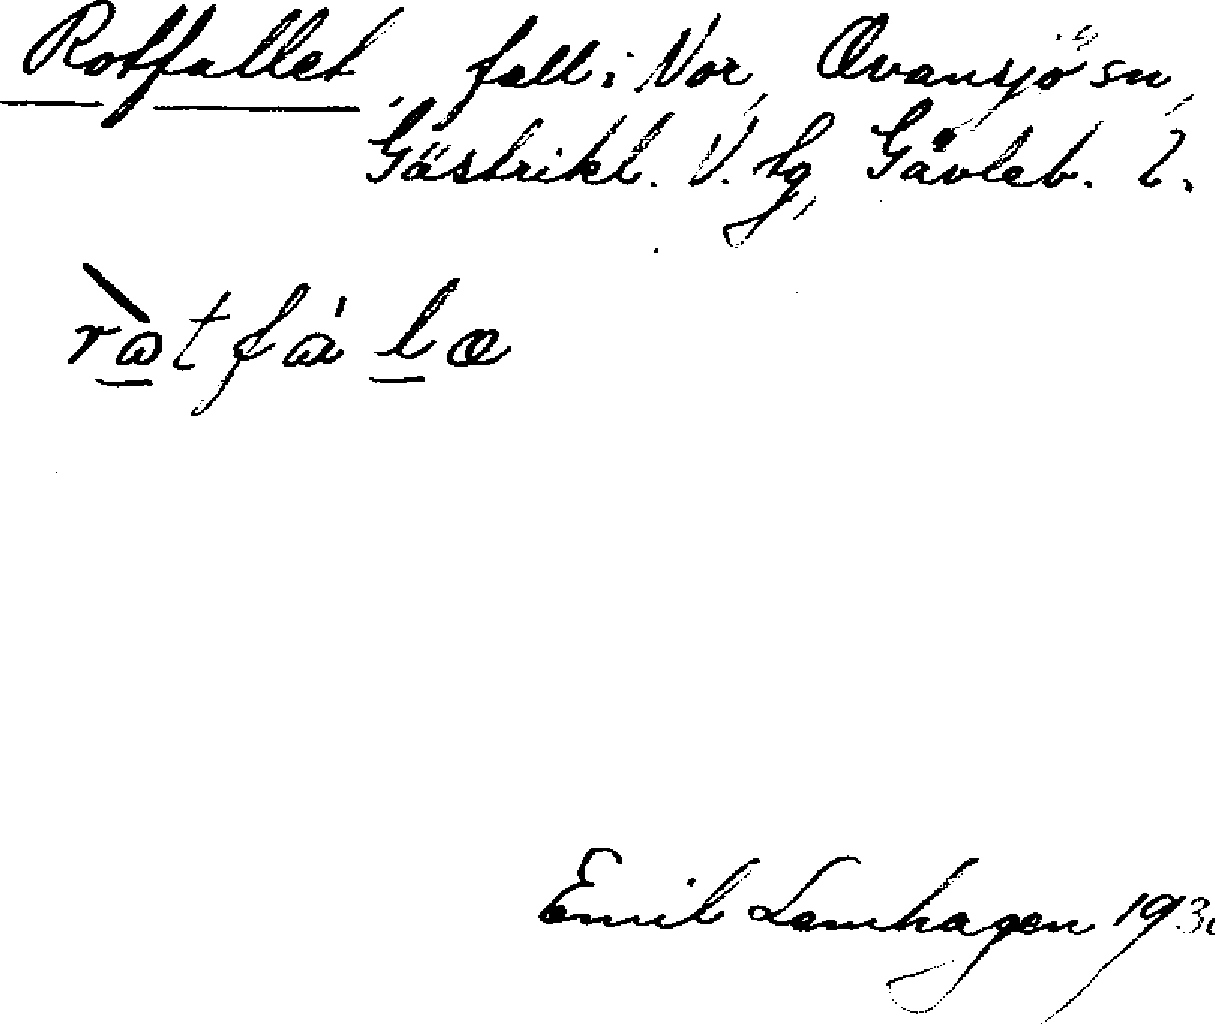 Rotfallet, fall i Nor, Ovansjö sn,
Gästrikl. V. tg, Gävleb. l.
ròtfálæ
Emil Lenhagen 193